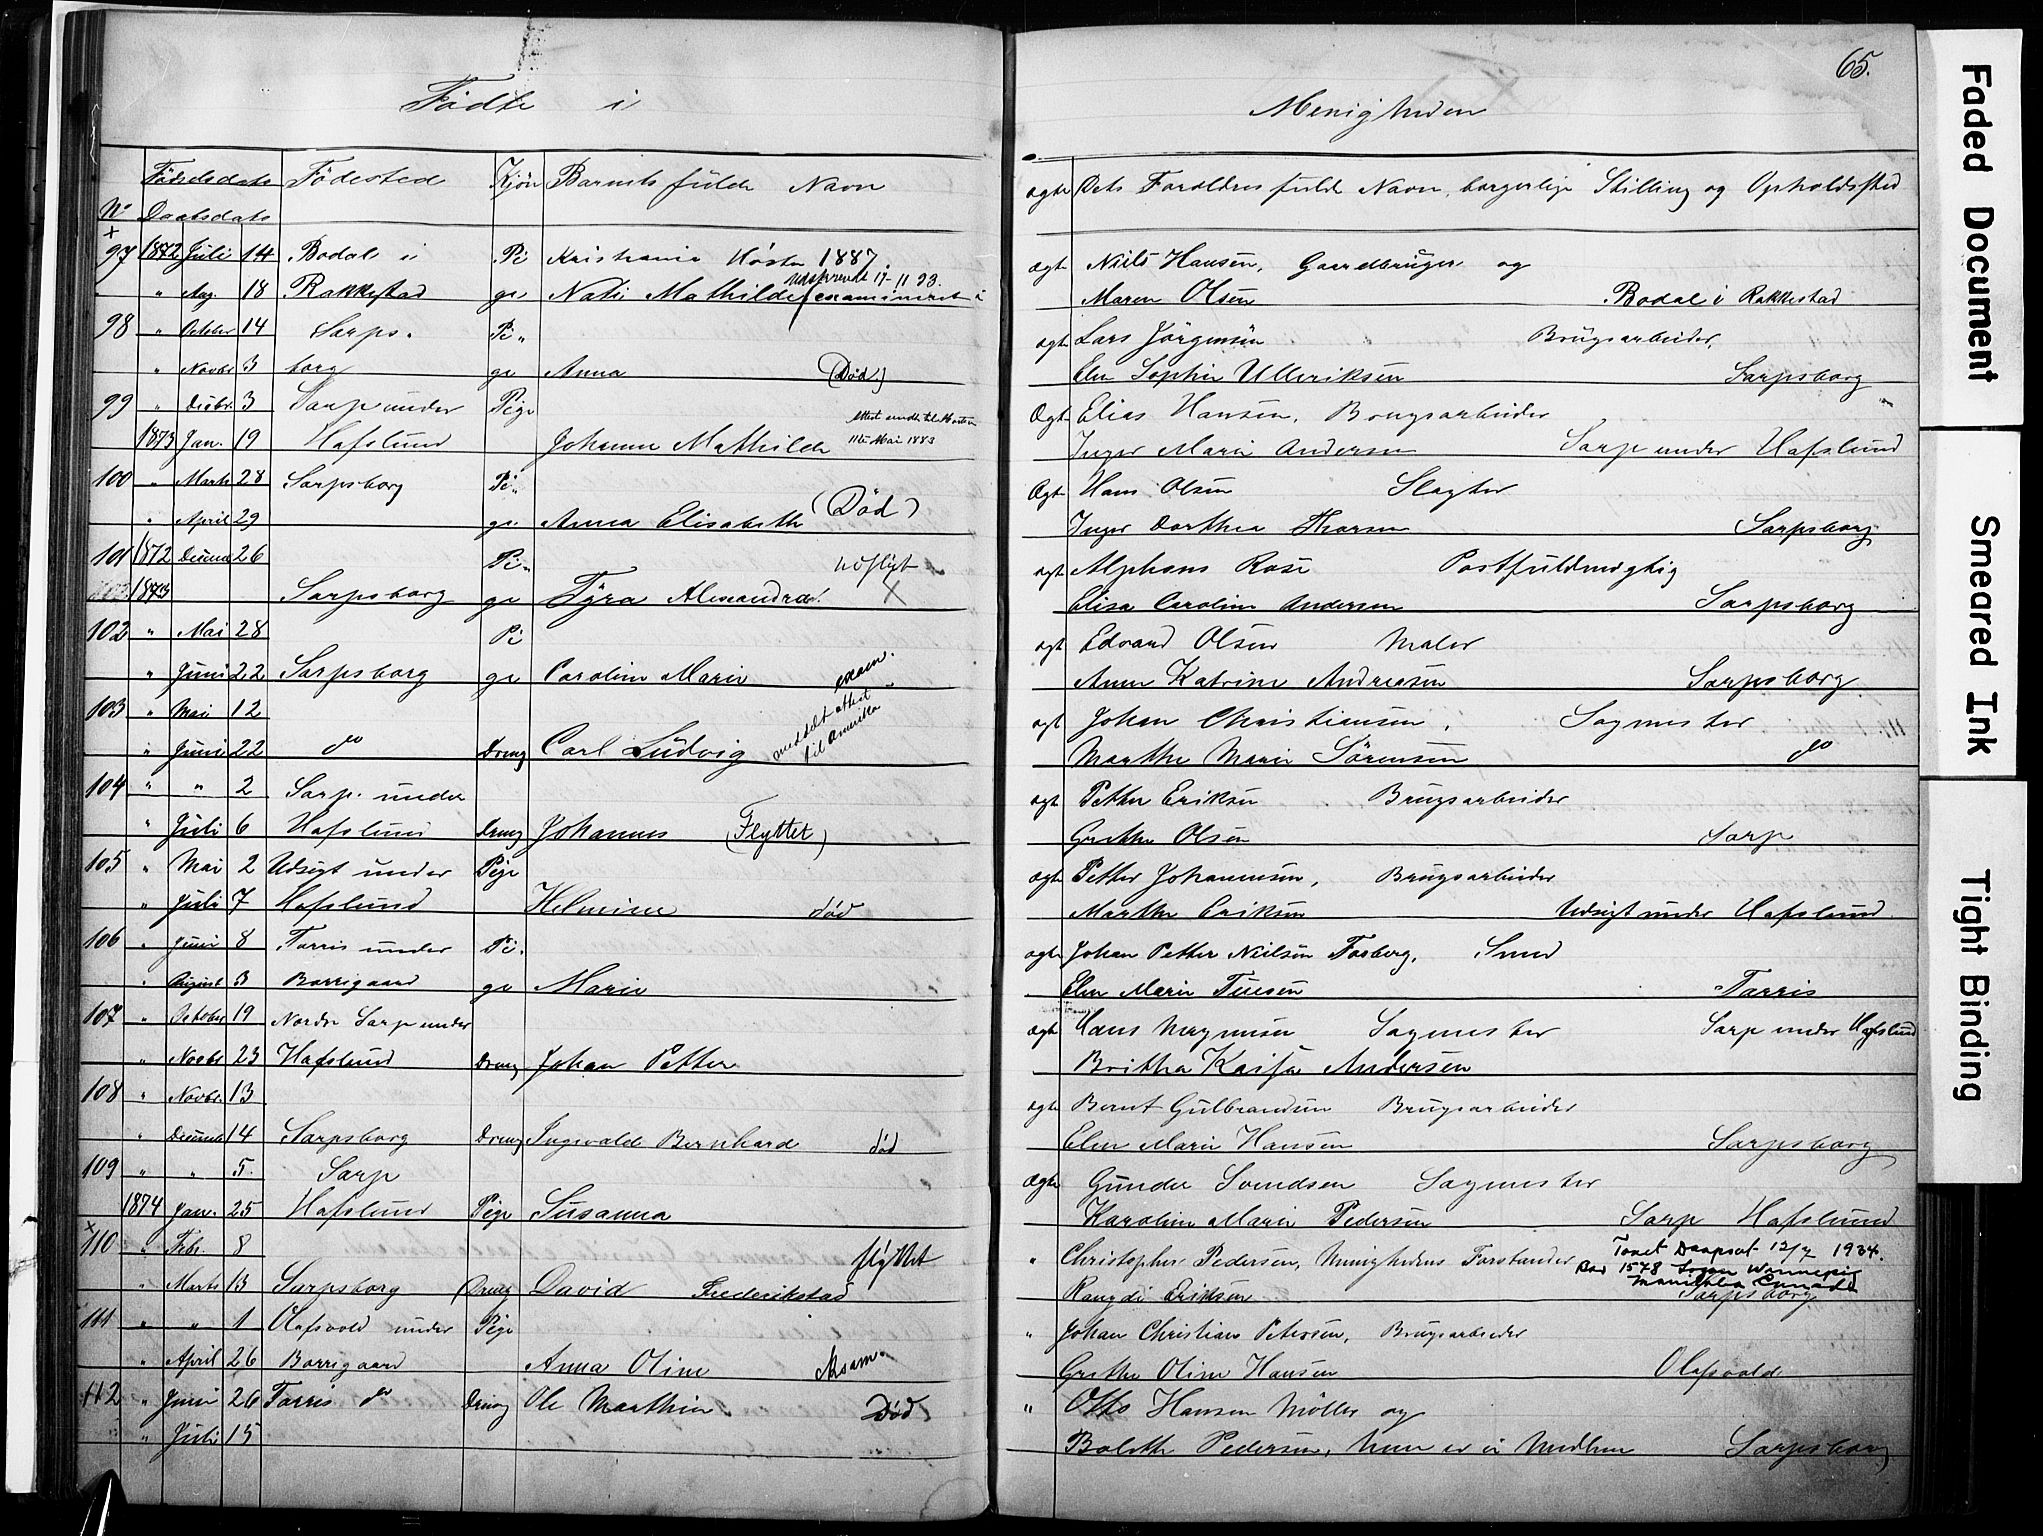 65.
Fødte i Menigheden
No Fødselsdato Fødested Kjøn Barnets fulde Navn ægte Dets Forældres fulde Navn, borgerlige Stilling og Opholdsted
Daabsdato
97 1872 Juli 14 Bodal i Pi Kristiania Høsten 1887. ægte Niels Hansen, Gaardbruger og
" Aug. 18 Rakkestad ge Mathilde examineret Maren Olsen Bodal i Rakkestad
98 " October 14 Sarps- Pi- ægte Lars Jørgensen Brugsarbeider,
" Novbr 3 borg ge Anna (Død.) Elen Sophie Ulleriksen Sarpsborg
99 " Decbr. 3 Sarp under Pige Ægte Elias Hansen, Brugsarbeider
1873 Jan. 19 Hafslund Johanne Mathilde 11te Mai 1883 Inger Marie Andersen Sarp under Hafslund
100 " Marts 28 Sarpsborg Pi- Ægte Hans Olsen Slagter
" April 29 ge Anna Elisabeth (Død) Inger Dorthea Thorsen Sarpsborg
101 1872 Decemb 26 Pi- ægt Alphons Rose Postfuldmægtig
1873 Sarpsborg ge Tyra Alexandra. X Elisa Caroline Andersen Sarpsborg
102 " Mai 28 Pi ægt Edvard Olsen Maler
" Juni 22 Sarpsborg ge Caroline Marie exam. Anne Katrine Andreasen Sarpsborg
103 " Mai 12 meddelt attest ægt Johan Christiansen, Sagmester
" Juni 22 do Dreng Carl Ludvig til Amerika Marthe Marie Sørensen do
104 " " 2 Sarp. under ægt Petter Eriksen Brugsarbeider
" Juli 6 Hafslund Dreng Johannes (Flyttet) Grethe Olsen Sarp
105 " Mai 2 Udsigt under Pige ægte Petter Johannesen, Brugsarbeider
" Juli 7 Hafslund Helmine død Marthe Eriksen Udsigt under Hafslund
106 " Juni 8 Torris under Pi- ægte Johan Petter Nielsen Fosberg, Smed
" August 3 Borrigaard ge Marie Elen Marie Tuesen Torris
107 " October 19 Nordre Sarp under ægte Hans Magnusen Sagmester Sarp under Hafslund
" Novbr 23 Hafslund Dreng Johan Petter Britha Kaisa Andersen
108 " Novbr. 13 ægte Bernt Gulbrandsen Brugsarbeider
" Decemb 14 Sarpsborg Dreng Ingevald Bernhard død Elen Marie Hansen Sarpsborg
109 " " 5. Sarp Ægte Gunder Svendsen Sagmester
1874 Jan. 25 Hafslund Pige Susanna Karoline Marie Pedersen Sarp Hafslund
110 " Febr. 8 flyttet " Christopher Pedersen, Menighedens Forstander Daapsat 12/7 1934.
" Marts 13 Sarpsborg Dreng David Frederikstad Rangdi Eriksen 1578 Logan Winnepig Manitoba Canada Sarpsborg
111 " " 1 Olafsvold under Pige " Johan Christian Petersen, Brugsarbeider
" April 26 Borrigaard Anna Oline eksam. Grethe Oline Hansen Olafsvold
112 " Juni 26 Torris do Dreng Ole Marthin Død " Otto Hansen Møller og
" Juli 15 Bolethe Pedersen, hun er ei Medlem Sarpsborg
Faded Document
Smeared Ink
Tight Binding